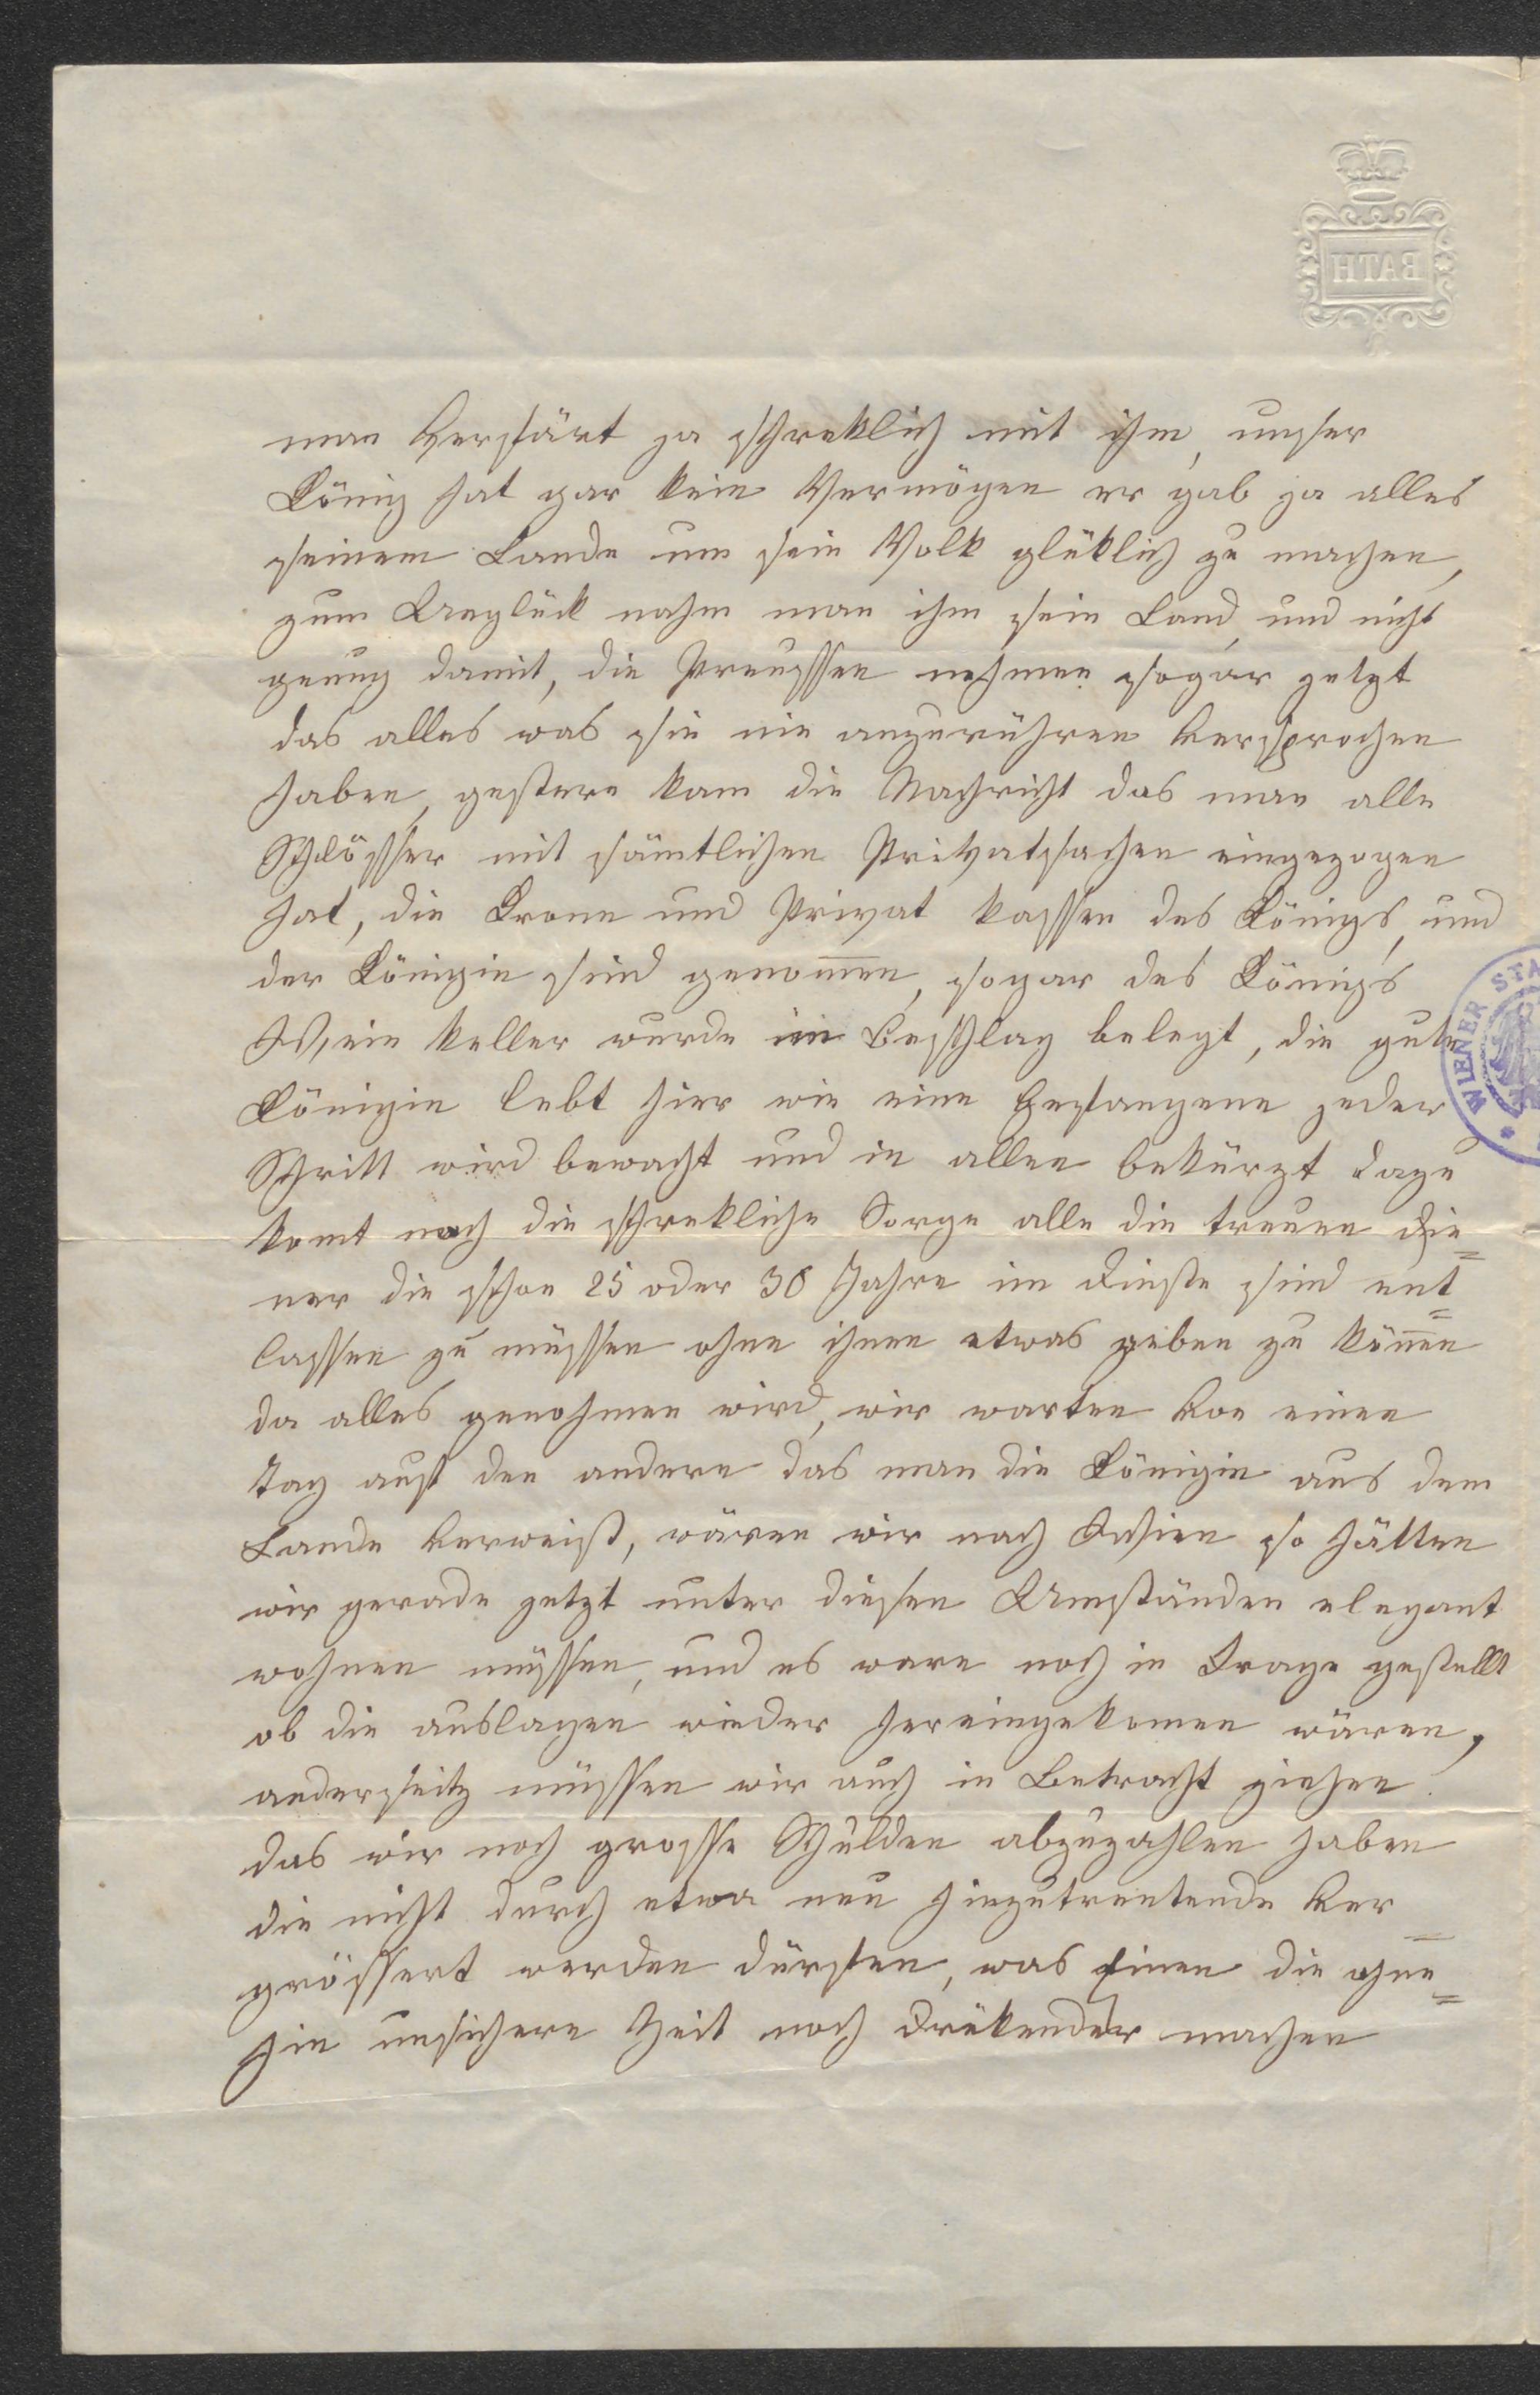 BATH
man verfärt ja schreklich mit ihm, unser
König hat gar kein Vermögen er gab ja alles
seinem Lande um sein Volk glüklich zu machen,
zum Unglück nahm man ihm sein Land, und nicht
genug damit, die Preussen nehmen sogar jetzt
das alles was sie nie anzurühren versprochen
haben, gestern kam die Nachricht das man alle
Schlösser mit sämtlichen Privatsachen eingezogen
hat, die Krone und Privat kassen des Königs, und
der Königin sind genom̅en, sogar des Königs
Wein keller wurde in Beschlag belegt, die gute
Königin lebt hier wie eine Gefangene jeder
Schritt wird bewacht und in allen bekürzt dazu
komt noch die schrekliche Sorge alle die treuen Die=
ner die schon 25 oder 30 Jahre im Dinste sind ent=
lassen zu müssen ohne ihnen etwas geben zu kön̅en
da alles genohmen wird, wir warten von einen
Tag auf den andern das man die Königin aus dem
Lande verweist, wären wir nach Wien so hätten
wir gerade jetzt unter diesen Umständen elegant
wohnen müssen, und es ware noch in Frage gestellt
ob die auslagen wieder hereingekomen wären,
anderseitz müssen wir auch in Betracht ziehen
das wir noch grosse Schulden abzuzahlen haben
die nicht durch etwa neu hinzutretende ver=
grössert werden dürften, was Einen die ohne=
hin unsichere Zeit noch drükender machen
WIENER STA